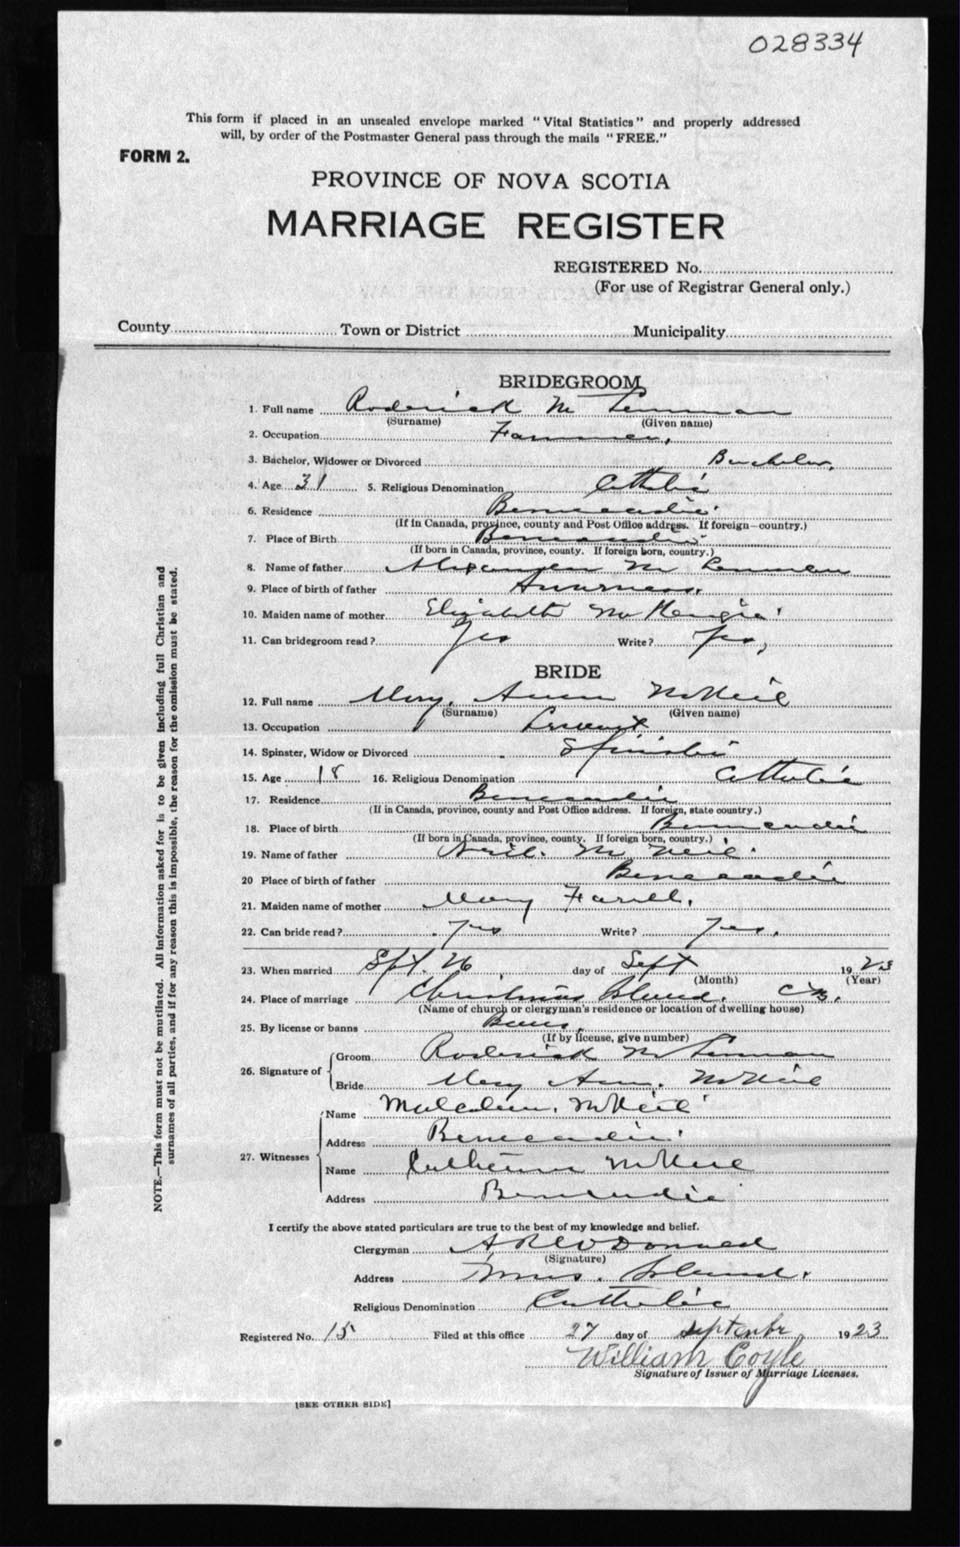 028334
This form if placed in an unsealed envelope marked "Vital Statistics" and properly addressed
will, by order of the Postmaster General pass through the mails "FREE."
FORM 2.
PROVINCE OF NOVA SCOTIA
MARRIAGE REGISTER
REGISTERED No.
(For use of Registrar General only.)
County Town or District Municipality
BRIDEGROOM
1. Full name Roderick Mc
(Surname) (Given name)
2. Occupation Farmer,
3. Bachelor, Widower or Divorced Bachelor,
4. Age 31 5. Religious Denomination Catholic
6. Residence Beneacadie
(If in Canada, province, county and Post Office address. If foreign—country.)
7. Place of Birth Beneacadie
(If born in Canada, province, county. If foreign born, country.)
8. Name of father Alexander Mc
9. Place of birth of father
10. Maiden name of mother Elizabeth McKenzie
11. Can bridegroom read? Yes Write? Yes,
BRIDE
12. Full name Mary Ann McNeil
(Surname) (Given name)
13. Occupation Servant
14. Spinster, Widow or Divorced Spinster
15. Age 18 16. Religious Denomination Catholic
17. Residence Beneacadie
(If in Canada, province, county and Post Office address. If foreign, state country.)
18. Place of birth Beneacadie
(If born in Canada, province, county. If foreign born, country.)
19. Name of father Neil Mc Neil
20 Place of birth of father Beneacadie
21. Maiden name of mother Mary
22. Can bride read? Yes Write? Yes.
23. When married Spt. 26, day of Sept 1923
(Month) (Year)
24. Place of marriage Christmas Island. C.B.
(Name of church or clergyman's residence or location of dwelling house)
25. By license or banns Banns,
(If by license, give number)
26. Signature of
Groom Roderick Mc
Bride Mary Ann. McNeil
27. Witnesses
Name Malcolm. McNeil
Address Beneacadie
Name Catherine McNeil
Address Beneacadie
I certify the above stated particulars are true to the best of my knowledge and belief.
Clergyman A R McDonald
(Signature)
Address Xmas. Island.
Religious Denomination Catholic
Registered No. 15 Filed at this office 27 day of September 1923
William Coyle
Signature of Issuer of Marriage Licenses.
[SEE OTHER SIDE]
NOTE.—This form must not be mutilated. All information asked for is to be given including full Christian and
surnames of all parties, and if for any reason this is impossible, the reason for the omission must be stated.